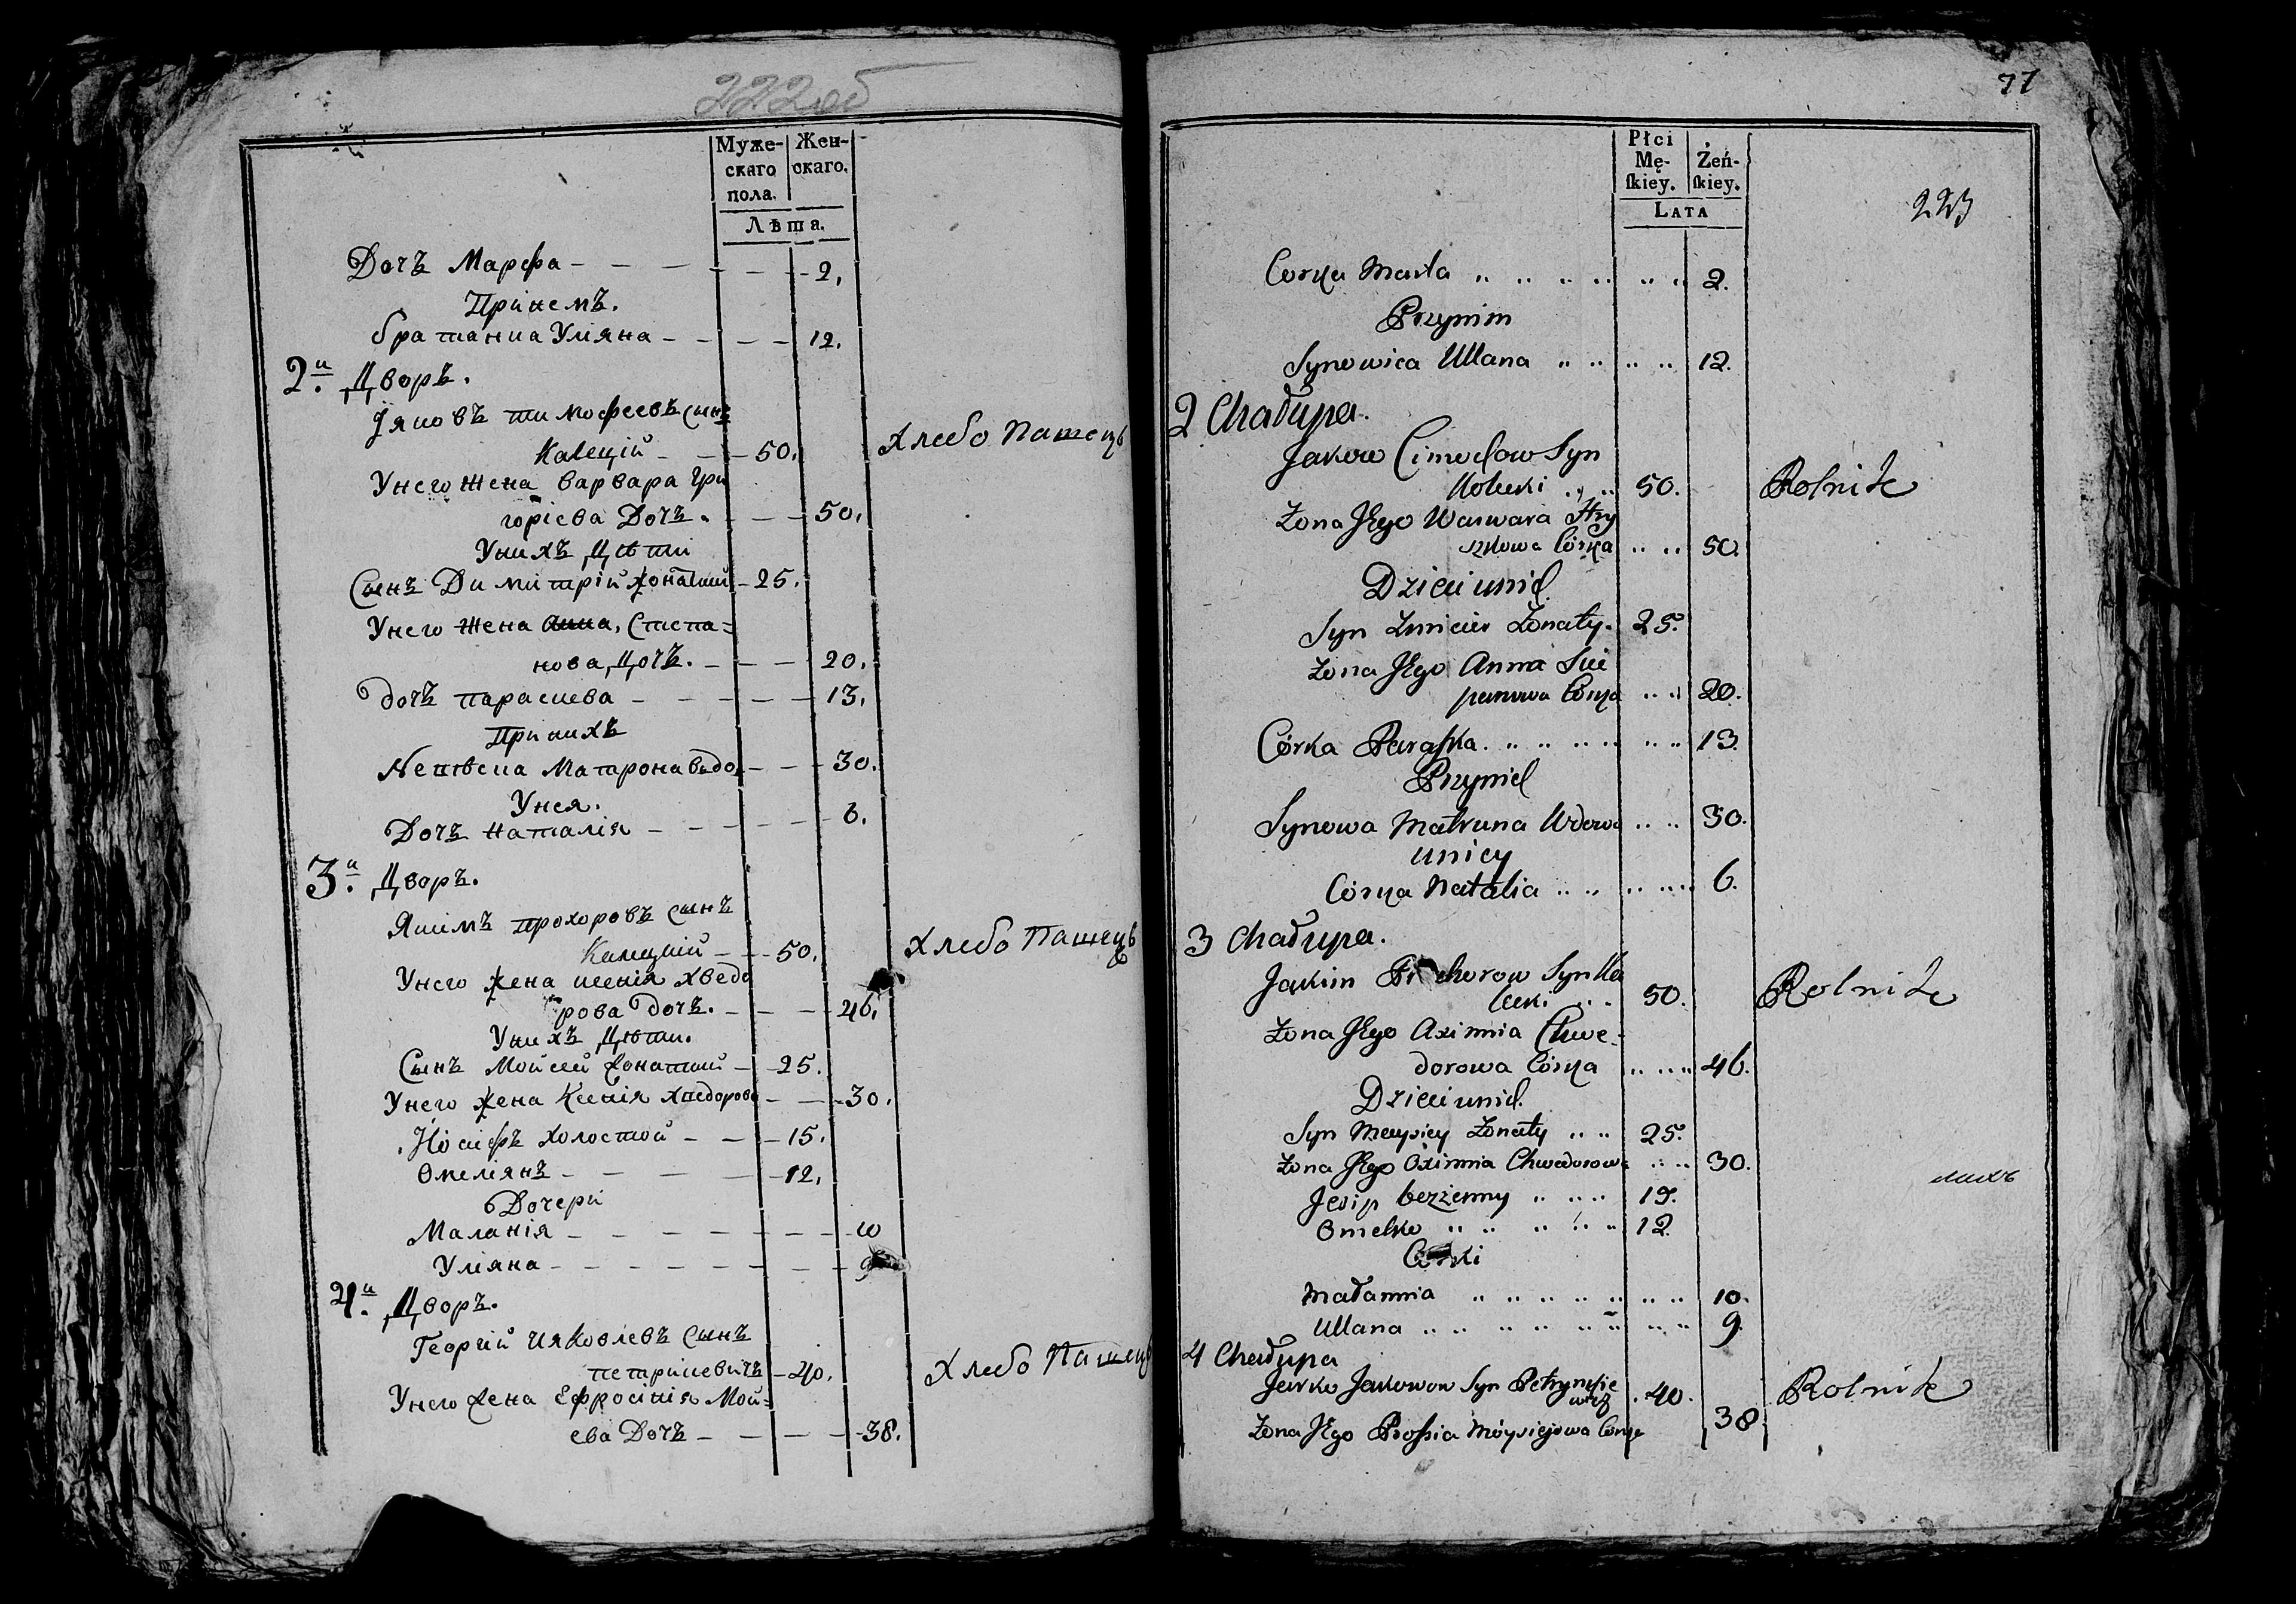 222 об
Муже-
скаго
пола.
Жен-
скаго.
Лѣта.
Дочъ Марфа 2.
При немъ.
братанка Уліяна 12.
2й Дворъ.
Іяковъ тимофеевъ сынъ
Калецкій 50. Хлебо Пашецъ
У него жена варвара Гри
горіева Дочъ. 50.
У нихъ Дѣти
Сынъ Димитрій жонатій 25.
У него жена Анна, Степа=
нова, Дочъ. 20.
дочъ параскева 13.
При нихъ
Невѣстка Матрона вдо 30.
У нея.
Дочъ Наталія 6.
3й Дворъ.
Якимъ прохоровъ сынъ
Калецкій 50. Хлебо Пашецъ
У него жена ксенія хведо
рова дочъ. 46.
У нихъ Дѣти.
Сынъ Мойсей жонатій 25.
У него жена Ксенія хведорова 30.
Иосифъ холостой 15.
Омеліянъ 12.
Дочери
Маланія 10
Уліяна 9
4й Дворъ.
Георгій Ияковлевъ Сынъ
петрикевичъ 40. Хлебо Пашецъ
У него жена Ефросінія Мой=
ева Дочъ 38.
77
Płci
Mę-
ſkiey.
Żeń-
ſkiey.
LATA
223
Corka Marta 2.
Przynim
Synowica Ullana 12.
2 Chałupa.
Jakow Cimochow Syn
Kolecki 50. Rolnik
Żona Jego Warwara Hry
szkowa Córka 50.
Dzieci unich
Syn Zmicier Żonaty. 25.
Żona Jego Anna Ście
panowa Córka 20.
Córka Paraska 13.
Przynich
Synowa Matruna Wdowa 30.
unicy
Córka Natalia 6.
3 Chałupa.
Jakim Prochorow Syn Ko
lecki 50. Rolnik
Żona Jego Axinnia Chwe-
dorowa Córka 46.
Dzieci unich
Syn Moysiey Żonaty 25.
Żona Jego Oxinnia Chwedorowa 30.
Jesip bezżenny 15.
Omelko 12.
Córki
Małannia 10.
Ullana 9.
4 Chałupa
Jurko Jakowow Syn Petrynkie
wicz 40. Rolnik
Żona Jego Prosia Móysiejowa Córka 38